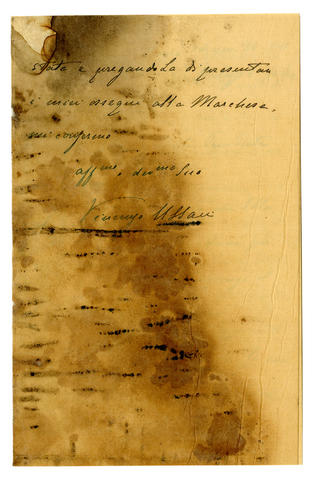 stata e pregandola di presentare
i miei ossequi alla Marchesa,
mi confermo
aff.mo, dev.mo Suo
Vincenzo Ussani